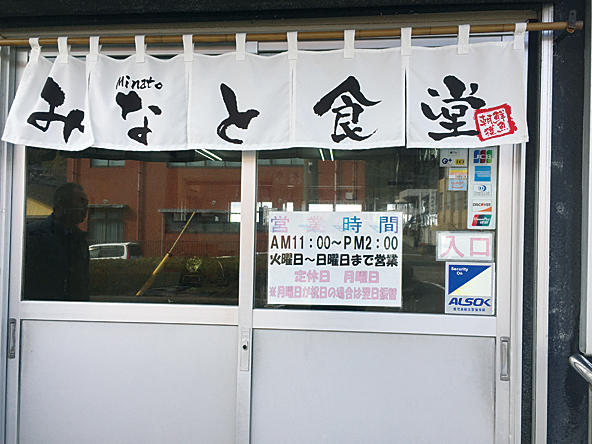 Minato
みなと食堂
鮮魚
朝獲
営業時間
AM11:00~PM2:00
火曜日~日曜日まで営業
定休日 月曜日
※月曜日が祝日の場合は翌日振替
JCB
DISCOVER
入口
Security On
ALSOK